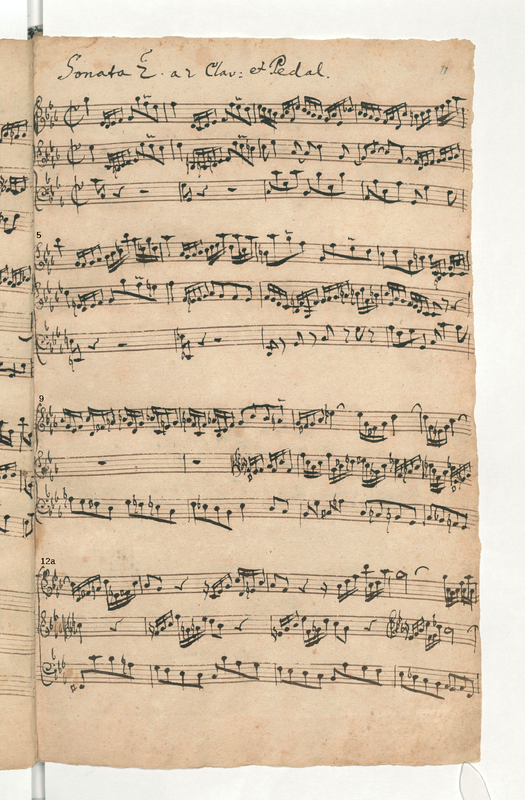 Sonata 2. a 2 Clav: et Pedal.
5
9
12a